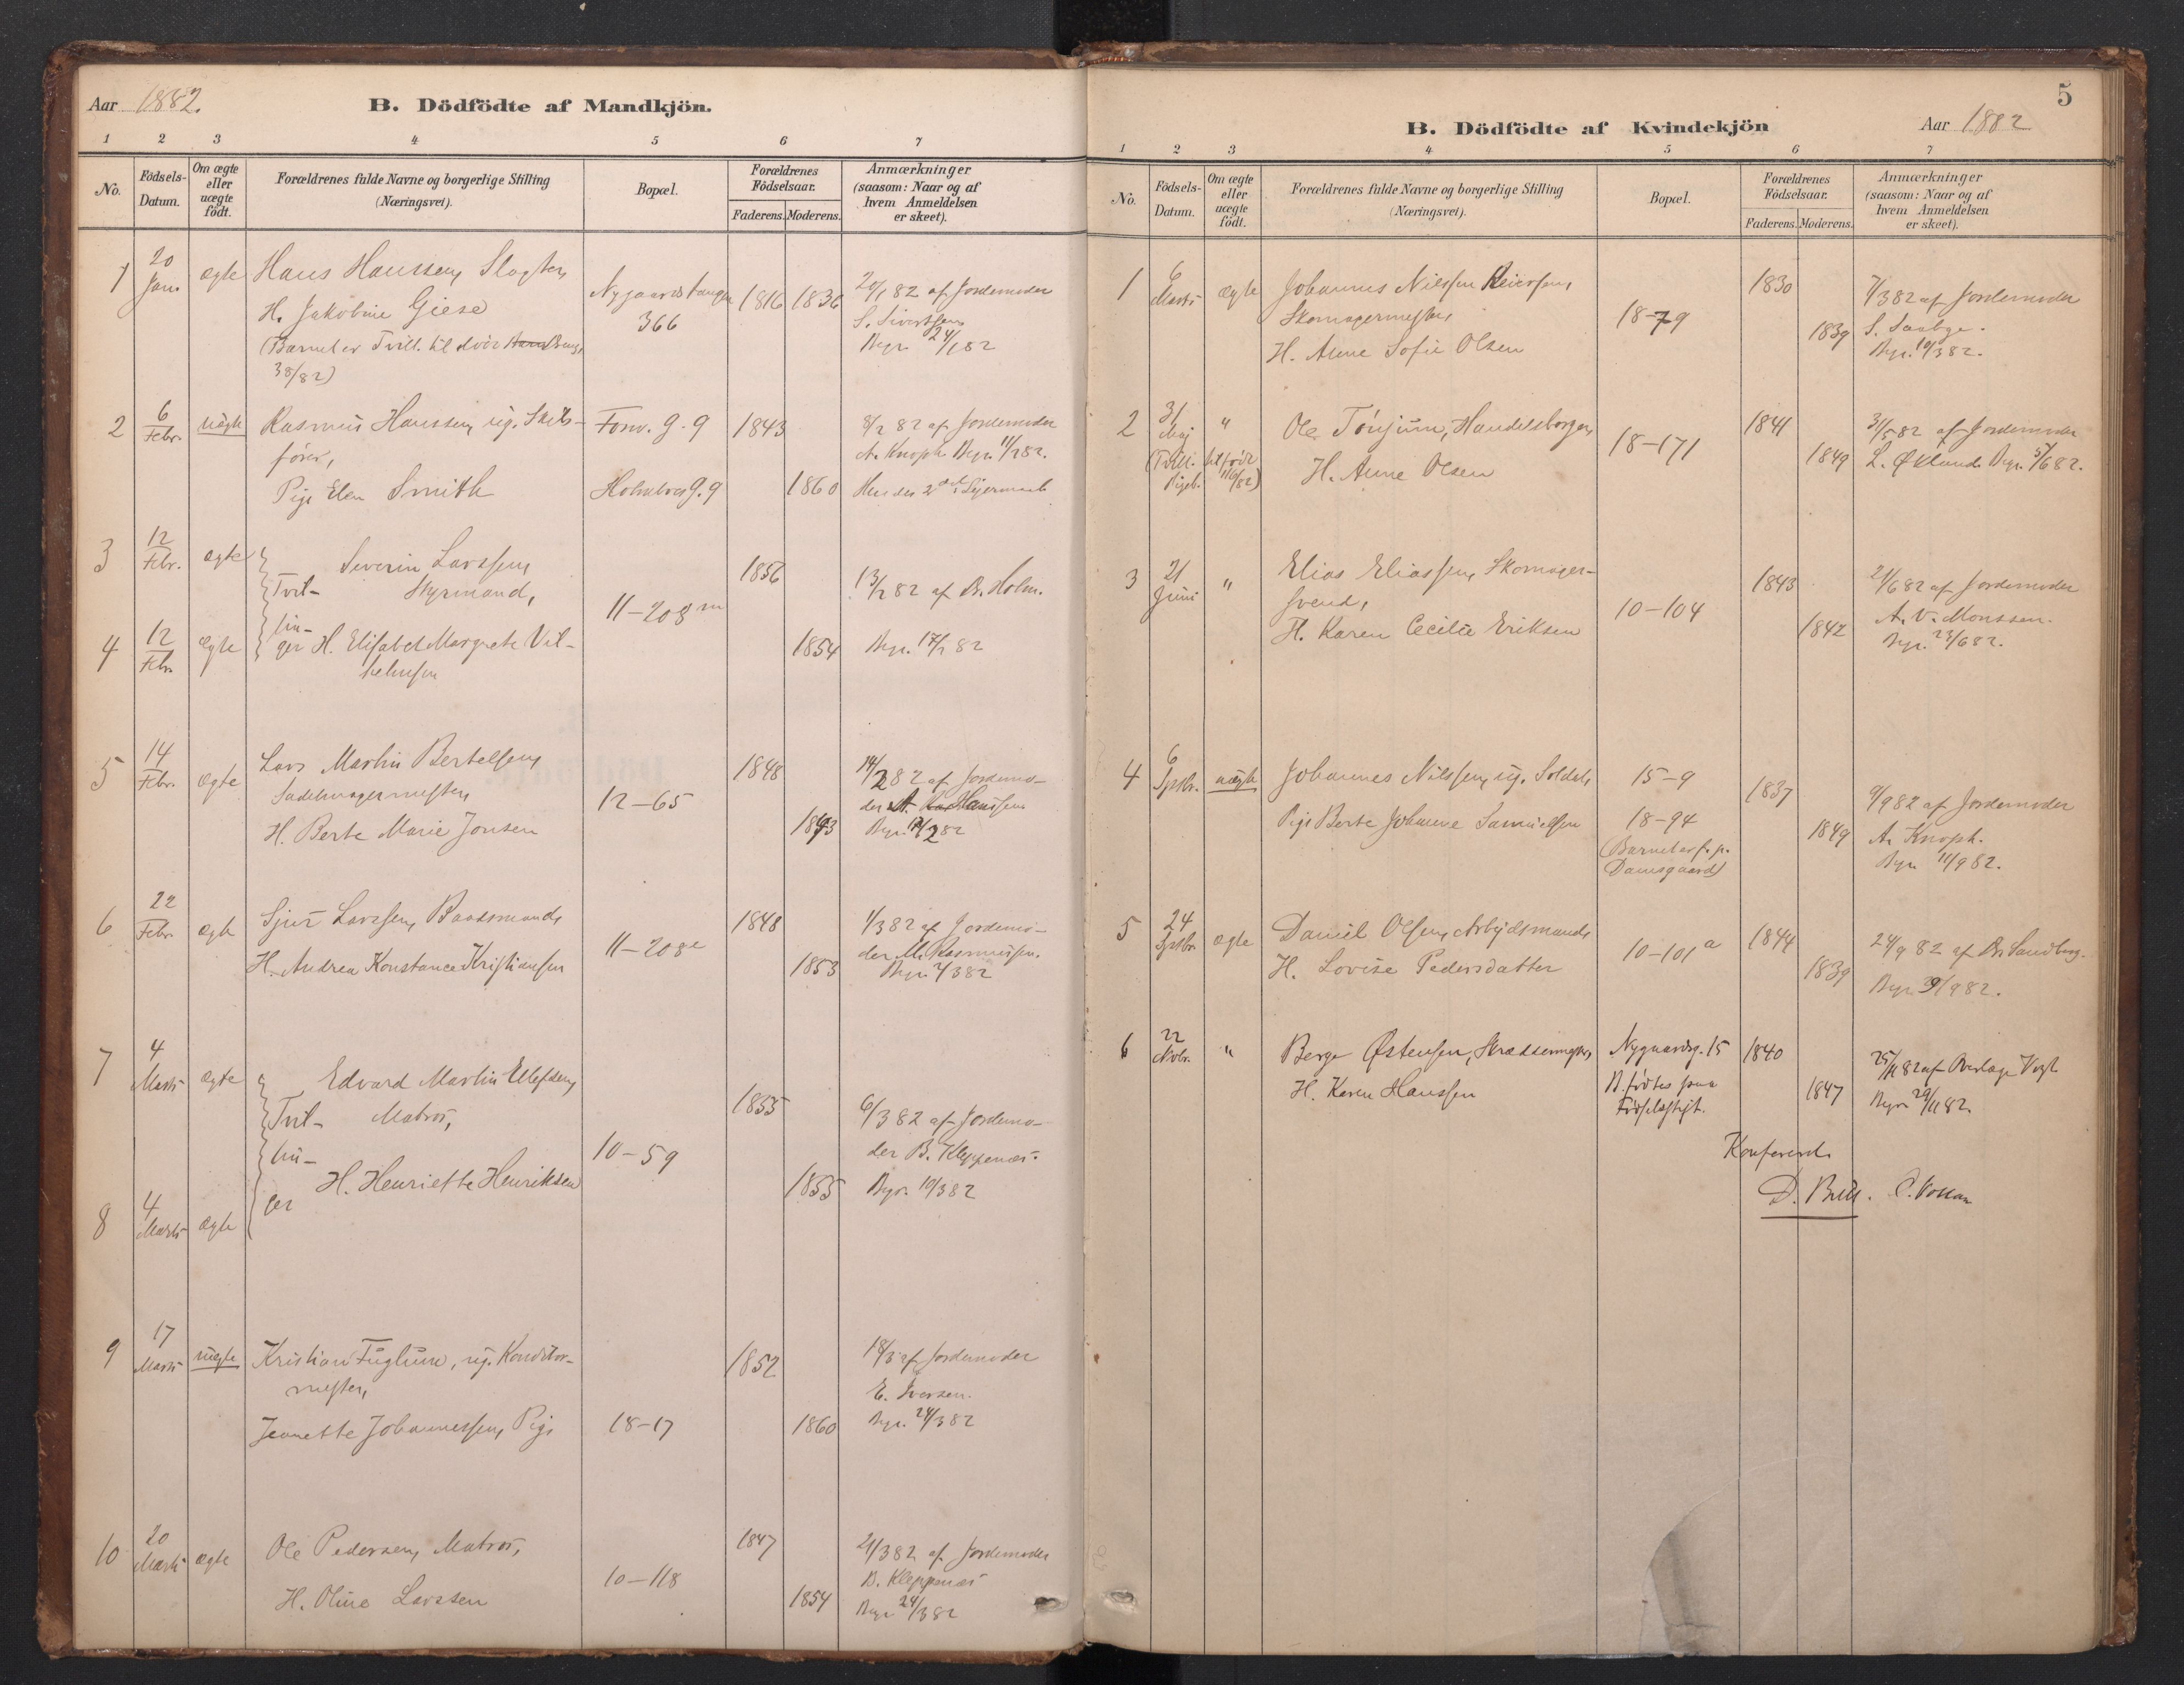 Aar 1882.
B. Dödfödte af Mandkjön.
1 2 3 4 5 6 7
No.
Födsels-Datum.
Om ægte eller uægte födt.
Forældrenes fulde Navne og borgerlige Stilling
(Næringsvei).
Bopæl.
Forældrenes Födselsaar.
Faderens. Moderens.
Anmærkninger
(saasom: Naar og af
hvem Anmeldelsen
er skeet).
1 20 Jan. ægte Hans Hanssen, Slagter,
H. Jakobine Giese
(Barnet er Tvill. til
38/82)
366
1816 1836
20/1 82 af Jordemoder
S. Sivertsen
Begr. 24/1 82
2 6 Febr. uægte Rasmus Hanssen, ug. Skibs-
fører,
Pige Elen Smith
Forv. g. 9
Holmbog. 9
1843
1860
8/2 82 af Jordemoder
A. Knoph. Begr. 11/2 82.
Hendes 2det Lejermaal
3 12 Febr. ægte Severin Larssen,
Tvil- Styrmand,
4 12 Febr. ægte
lin-
ger H. Elisabet Margrete Vil-
helmsen
11-208 m
1856
1854
13/2 82 af Dr. Holm.
Begr. 17/2 82
5 14 Febr. ægte Lars Martin Bertelsen,
Sadelmagermester,
H. Berte Marie Jonsen
12-65
1848
14/2 82 af Jordemo-
der A. Hanssen
6 22 Febr. ægte Sjur Larssen, Baadsmand,
H. Andrea Konstance Kristiansen
11-208 e
1848
1853
1/3 82 af Jordemo-
der M. Rasmussen.
Begr. 2/3 82
7 4 Marts ægte Edvard Martin Ellefsen,
Tvil- Matros,
lin-
ger H. Henriette Henriksen
8 4 Marts ægte
10-59
1855
1855
6/3 82 af Jordemo-
der B. Kleppenæs.
Begr. 10/3 82
9 17 Marts uægte Kristian Fuglum, ug. Konditor-
mester,
Jeanette Johannessen, Pige
18-17
1852
1860
18/3 af Jordemoder
E. Iversen.
Begr. 24/3 82
10 20 Marts ægte Ole Pedersen, Matros,
H. Oline Larssen
10-118
1847
1854
21/3 82 af Jordemoder
B. Kleppenæs
Begr. 24/3 82
5
B. Dödfödte af Kvindekjön
Aar 1882
1 2 3 4 5 6 7
No.
Födsels-Datum.
Om ægte eller uægte födt.
Forældrenes fulde Navne og borgerlige Stilling
(Næringsvei).
Bopæl.
Forældrenes Födselsaar.
Faderens. Moderens.
Anmærkninger
(saasom: Naar og af
hvem Anmeldelsen
er skeet).
1 6 Marts ægte Johannes Nilssen
Skomagermester,
H. Anne Sofie Olsen
18-79
1830
1839
7/3 82 af Jordemoder
Begr. 10/3 82.
2 31 Maj " Ole Tönjum, Handelsborger,
H. Anne Olsen
18-171
1841
1849
31/5 82 af Jordemoder
L. Økland. Begr. 5/6 82.
3 21 Juni " Elias Eliassen, Skomager-
svend,
H. Karen Cecilie Eriksen
10-104
1843
1842
21/6 82 af Jordemoder
A. V. Monssen.
Begr. 23/6 82.
4 6 Septbr. uægte Johannes Nilssen, ug. Soldat,
Pige Berte Johanne Samuelsen
15-9
18-94
(Barnet er f. p.
Damsgaard)
1837
1849
9/9 82 af Jordemoder
A. Knoph.
Begr. 11/9 82.
5 24 Septbr. ægte Daniel Olsen, Arbejdsmand,
H. Lovise Pedersdatter
10-101 a
1844
1839
24/9 82 af Dr. Sandberg.
6 22 Novbr. " Berge Østensen, Skræddermester,
H. Karen Hanssen
Nygaardsg. 15
B. fødtes paa
Fødselsstift.
1840
1847
25/11 82 af Overlæge Vogt
Begr. 29/11 82.
Konfereret.